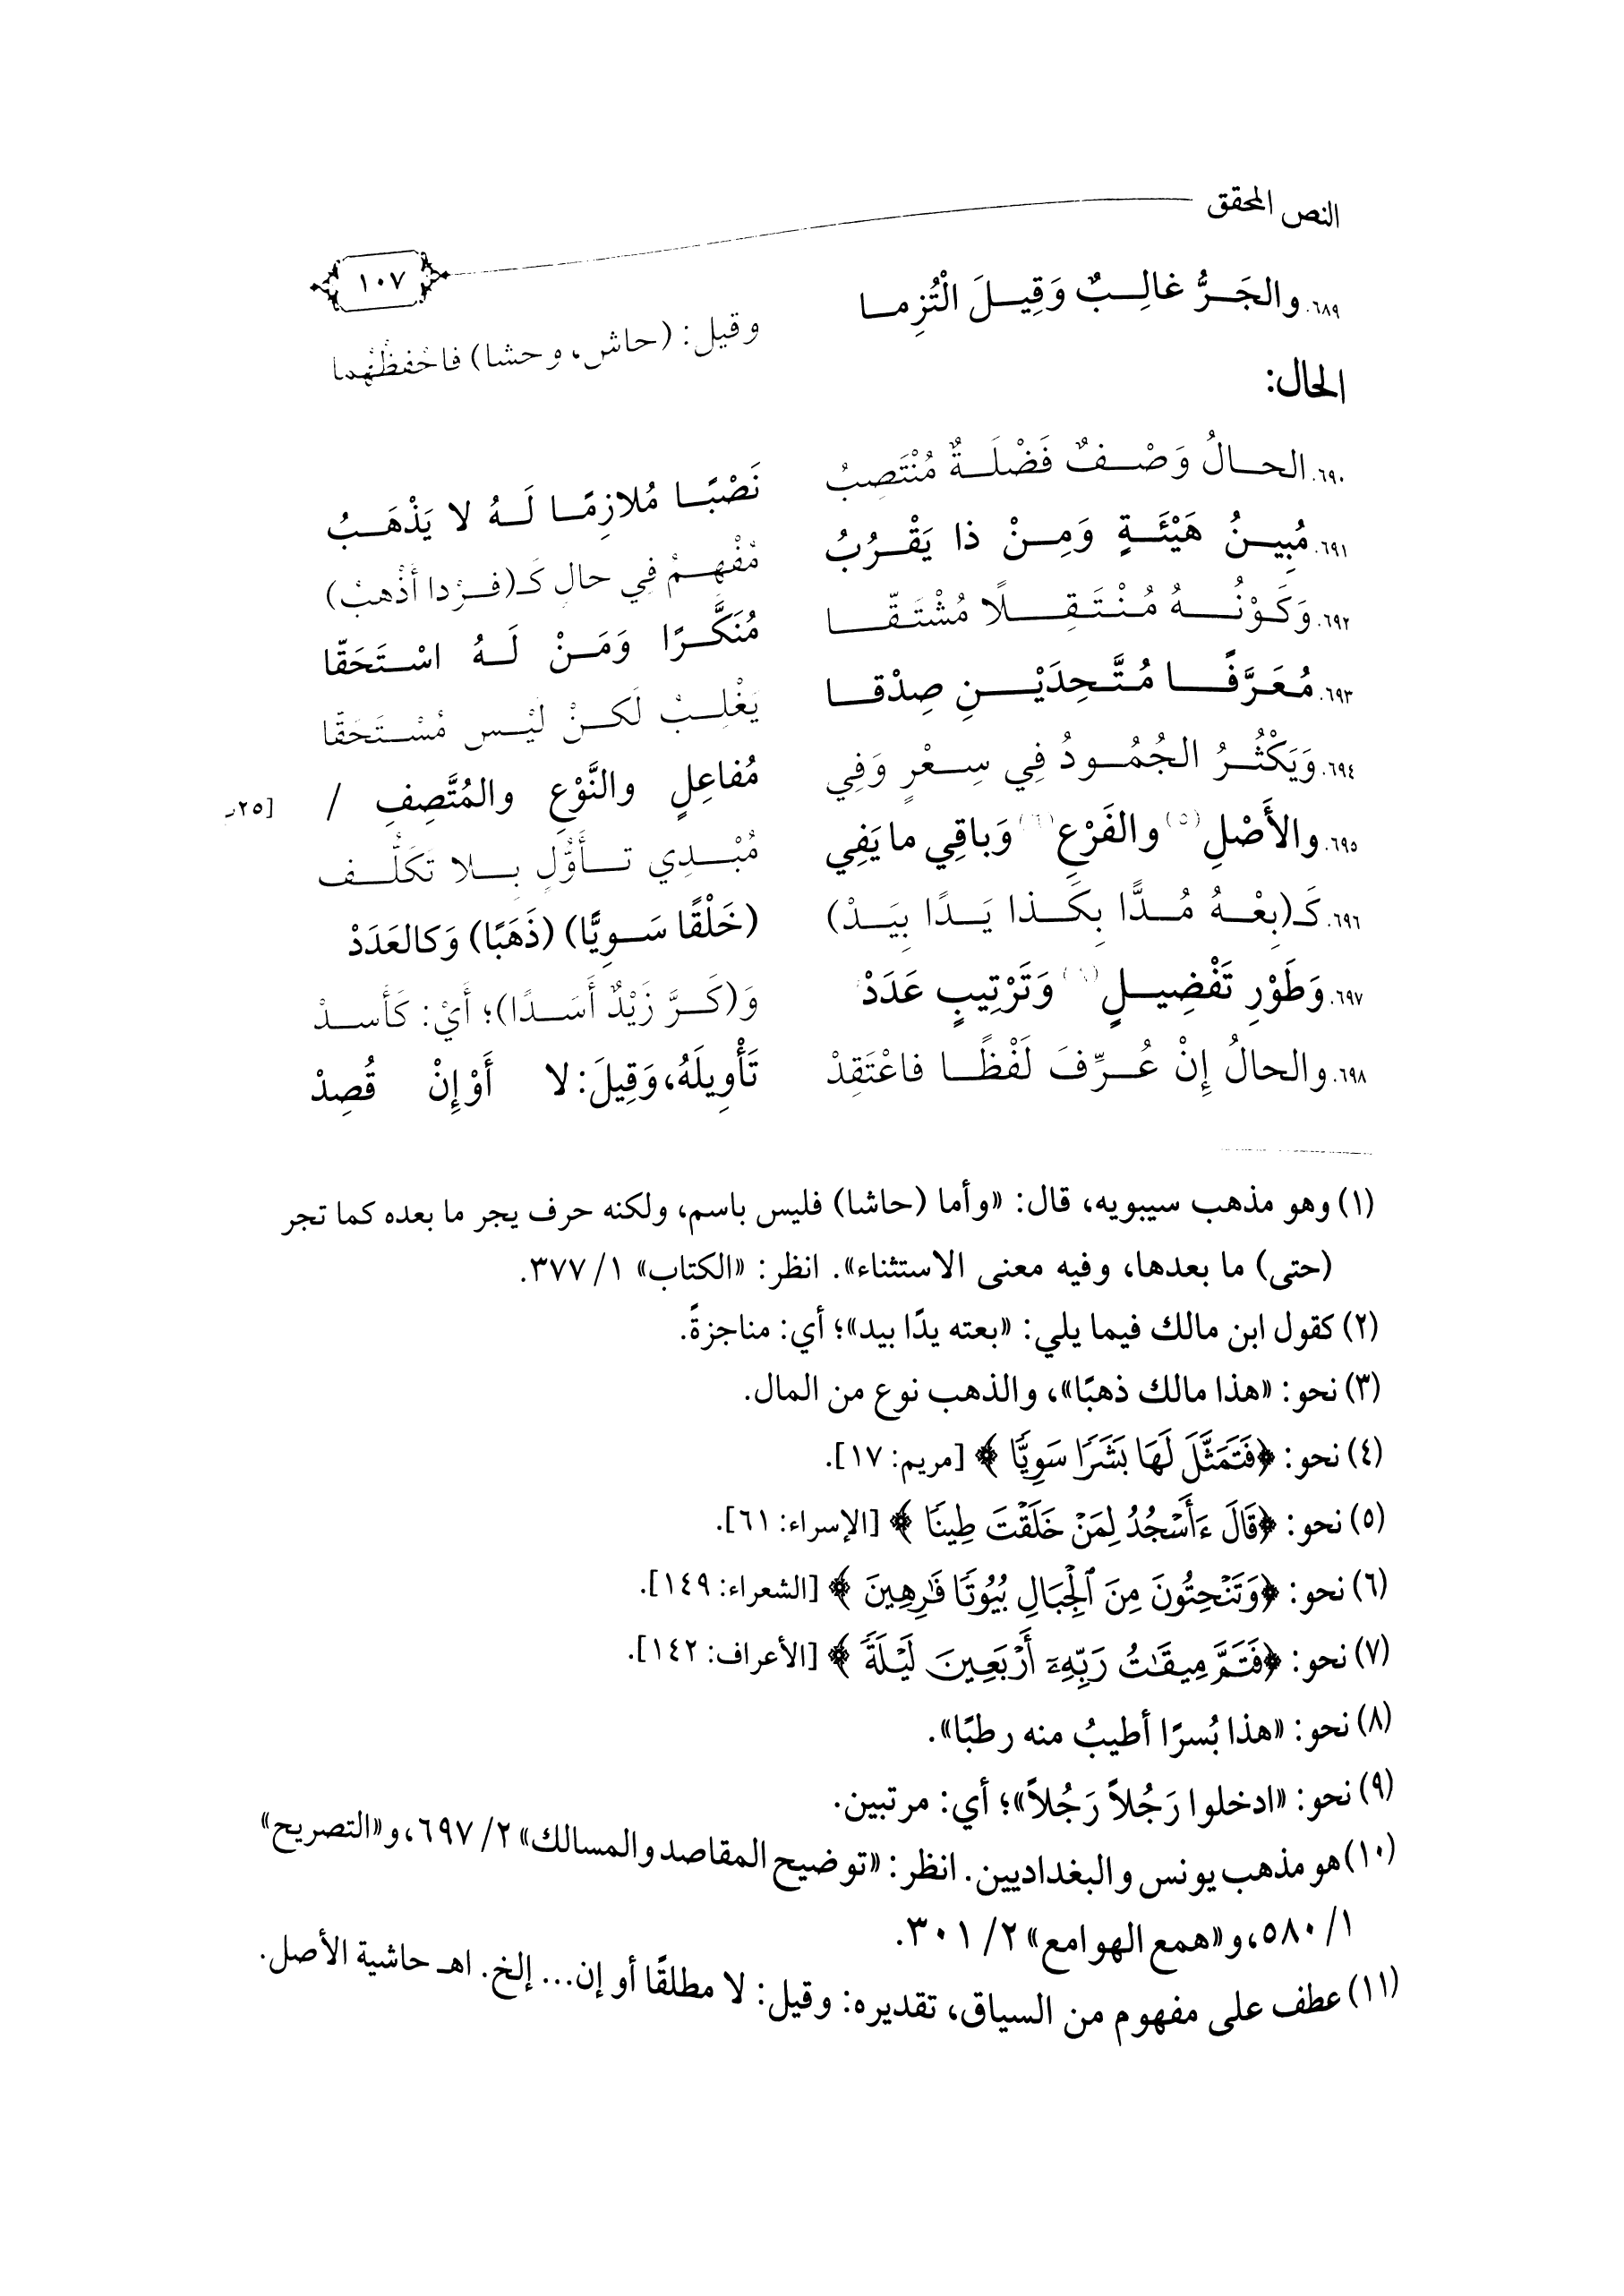 النص المحقق
١٠٧
٦٨٩. والجَرُّ غالِبٌ وَقِيلَ الْتُزِما وقيل: (حاش، وحشا) فاحْفظْنهما
الحال:
٦٩٠. الحالُ وَصْفٌ فَضْلَةٌ مُنْتَصِبُ نَصْبًا مُلازِمًا لَهُ لا يَذْهَبُ
٦٩١. مُبِينُ هَيْئَةٍ وَمِنْ ذا يَقْرُبُ مُفْهِمُ فِي حالِ كَـ(فرْدا أَذْهبُ)
٦٩٢. وَكَوْنُهُ مُنْتَقِلًا مُشْتَقّا مُنَكَّرًا وَمَنْ لَهُ اسْتَحَقّا
٦٩٣. مُعَرَّفًا مُتَّحِدَيْنِ صِدْقا يَغْلِبُ لَكنْ لَيْس مُسْتَحَقّا
٦٩٤. وَيَكْثُرُ الجُمُودُ فِي سِعْرٍ وَفِي مُفاعِلٍ والنَّوْعِ والمُتَّصِفِ / [٢٥ر
٦٩٥. والأَصْلِ(٥) والفَرْعِ(٦) وَباقِي ما يَفِي مُبْدِي تَأَوُّلٍ بِلا تَكَلُّف
٦٩٦. كَـ(بِعْهُ مُدًّا بِكَذا يَدًا بِيَدْ) (خَلْقًا سَوِيًّا) (ذَهَبًا) وَكالعَدَدْ
٦٩٧. وَطَوْرِ تَفْضِيلٍ وَتَرْتِيبٍ عَدَدْ وَ(كَرَّ زَيْدٌ أَسَدًا)؛ أَيْ: كَأَسدْ
٦٩٨. والحالُ إِنْ عُرِّفَ لَفْظًا فاعْتَقِدْ تَأْوِيلَهُ، وَقِيلَ: لا أَوْ إِنْ قُصِدْ
(١) وهو مذهب سيبويه، قال: «وأما (حاشا) فليس باسم، ولكنه حرف يجر ما بعده كما تجر
(حتى) ما بعدها، وفيه معنى الاستثناء». انظر: «الكتاب» ١/ ٣٧٧.
(٢) كقول ابن مالك فيما يلي: «بعته يدًا بيد»؛ أي: مناجزةً.
(٣) نحو: «هذا مالك ذهبًا»، والذهب نوع من المال.
(٤) نحو: ﴿فَتَمَثَّلَ لَهَا بَشَرًا سَوِيًّا﴾ [مريم: ١٧].
(٥) نحو: ﴿قَالَ ءَأَسْجُدُ لِمَنْ خَلَقْتَ طِينًا﴾ [الإسراء: ٦١].
(٦) نحو: ﴿وَتَنْحِتُونَ مِنَ ٱلْجِبَالِ بُيُوتًا فَٰرِهِينَ﴾ [الشعراء: ١٤٩].
(٧) نحو: ﴿فَتَمَّ مِيقَٰتُ رَبِّهِۦٓ أَرْبَعِينَ لَيْلَةً﴾ [الأعراف: ١٤٢].
(٨) نحو: «هذا بُسرًا أطيبُ منه رطبًا».
(٩) نحو: «ادخلوا رَجُلاً رَجُلاً»؛ أي: مرتبين.
(١٠) هو مذهب يونس والبغداديين. انظر: «توضيح المقاصد والمسالك» ٢/ ٦٩٧، و«التصريح»
١/ ٥٨٠، و«همع الهوامع» ٢/ ٣٠١.
(١١) عطف على مفهوم من السياق، تقديره: وقيل: لا مطلقًا أو إن... إلخ. اهـ حاشية الأصل.